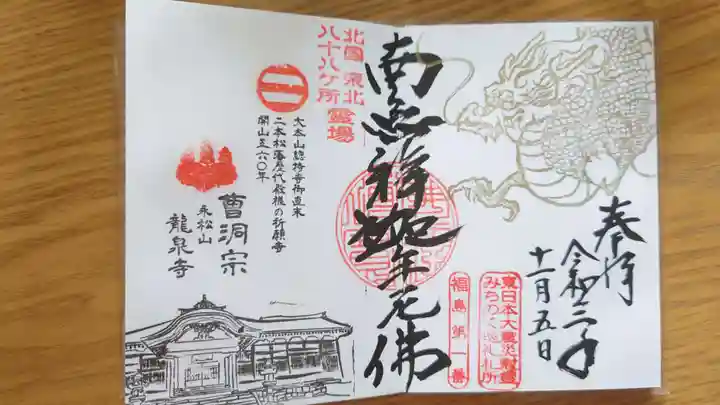 奉拝
令和二年
十一月五日
東日本大震災慰霊
みちのく巡礼札所
福島第一番
南無釈迦牟尼佛
北国 東北
八十八ケ所霊場
大本山總持寺御直末
二本松藩歴代殿様の祈願寺
開山五六〇年
曹洞宗
永松山
龍泉寺